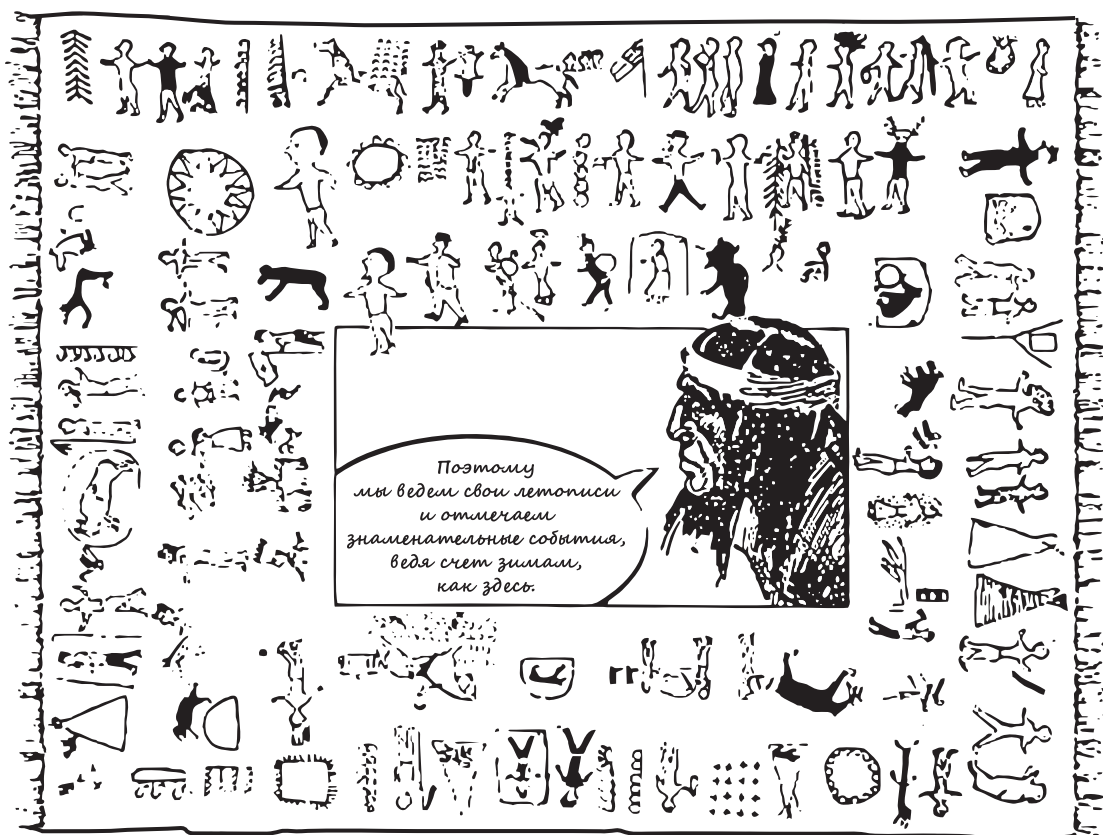 Поэтому
мы ведем свои летописи
и отмечаем
знаменательные события,
ведя счет зимам,
как здесь.